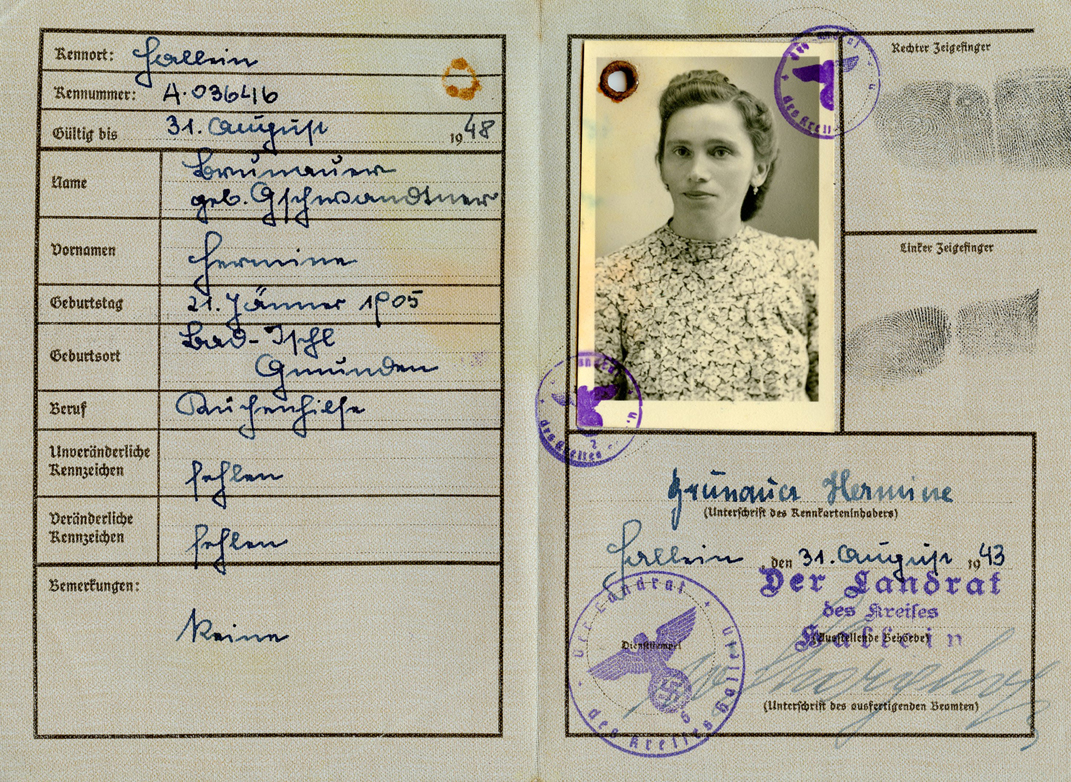 Kennort: Hallein
Kennummer: A·03646
Gültig bis 31. August 1948
Name Brunauer
geb. Gschwandtner
Vornamen Hermine
Geburtstag 21. Jänner 1905
Geburtsort Bad-Ischl
Gmunden
Beruf Küchenhilfe
Unveränderliche
Kennzeichen fehlen
Veränderliche
Kennzeichen fehlen
Bemerkungen:
Keine
Rechter Zeigefinger
Linker Zeigefinger
des Kreises
des Kreises
Brunauer Hermine
(Unterschrift des Kennkarteninhabers)
Hallein, den 31. August 1943
Der Landrat
des Kreises
Hallein
(Ausstellende Behörde)
Dienststempel
Der Landrat
des Kreises Hallein
(Unterschrift des ausfertigenden Beamten)